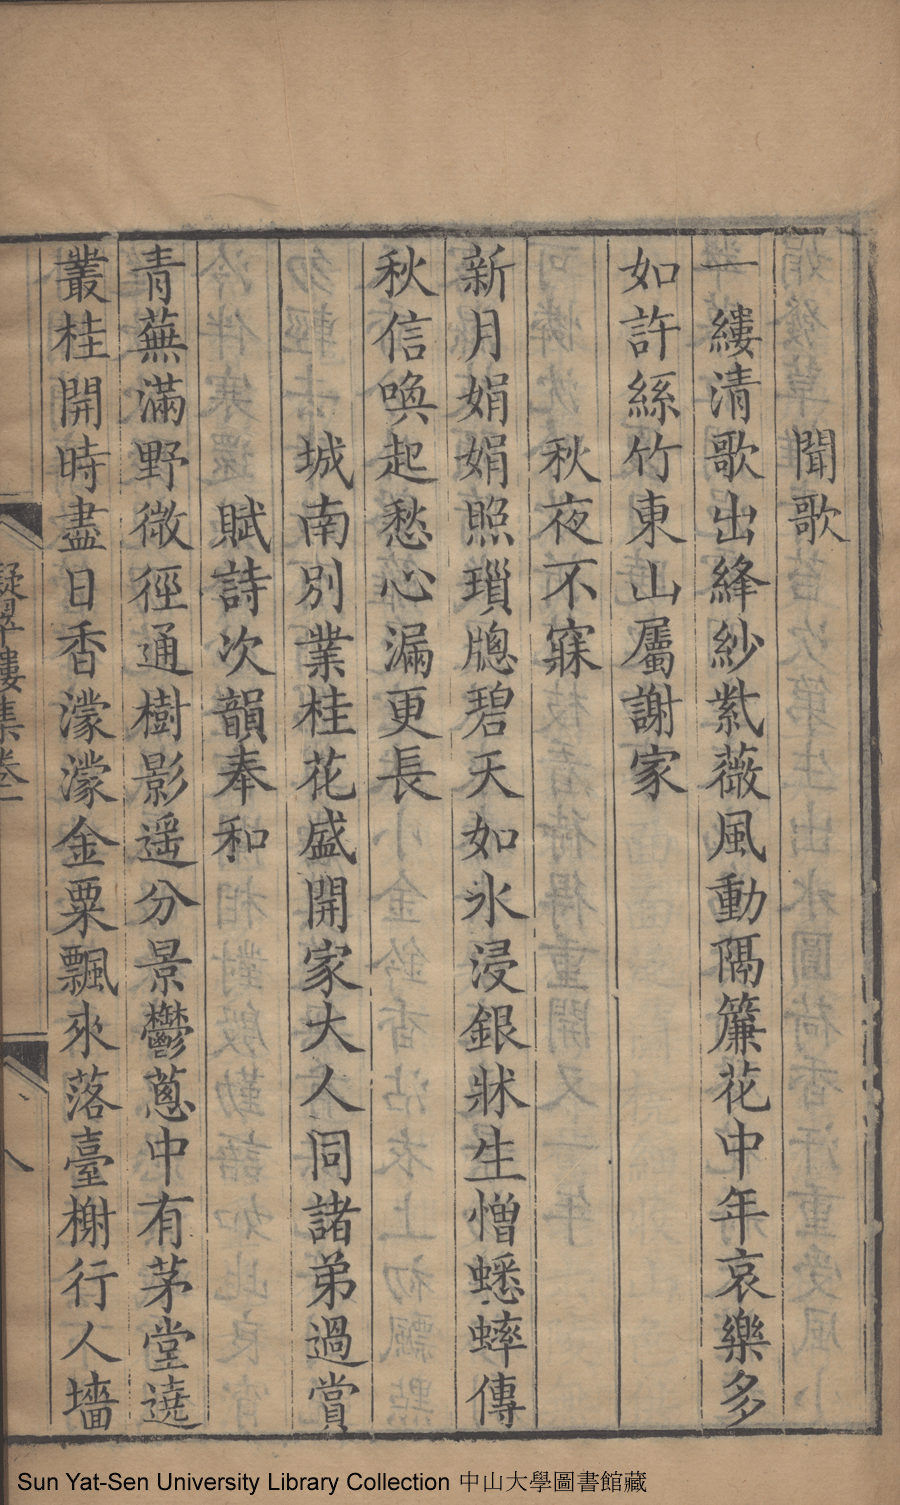 聞歌
一縷清歌出絳紗紫薇風動隔簾花中年哀樂多
如許絲竹東山屬謝家
秋夜不寐
新月娟娟照瑣牕碧天如氷浸銀牀生憎蟋蟀傳
秋信喚起愁心漏更長
城南別業桂花盛開家大人同諸弟過賞
賦詩次韻奉和
青蕪滿野微徑通樹影遥分景鬱蔥中有茅堂遶
叢桂開時盡日香濛濛金粟飄來落臺榭行人墻
凝翠樓集卷一
八
Sun Yat-Sen University Library Collection 中山大學圖書館藏